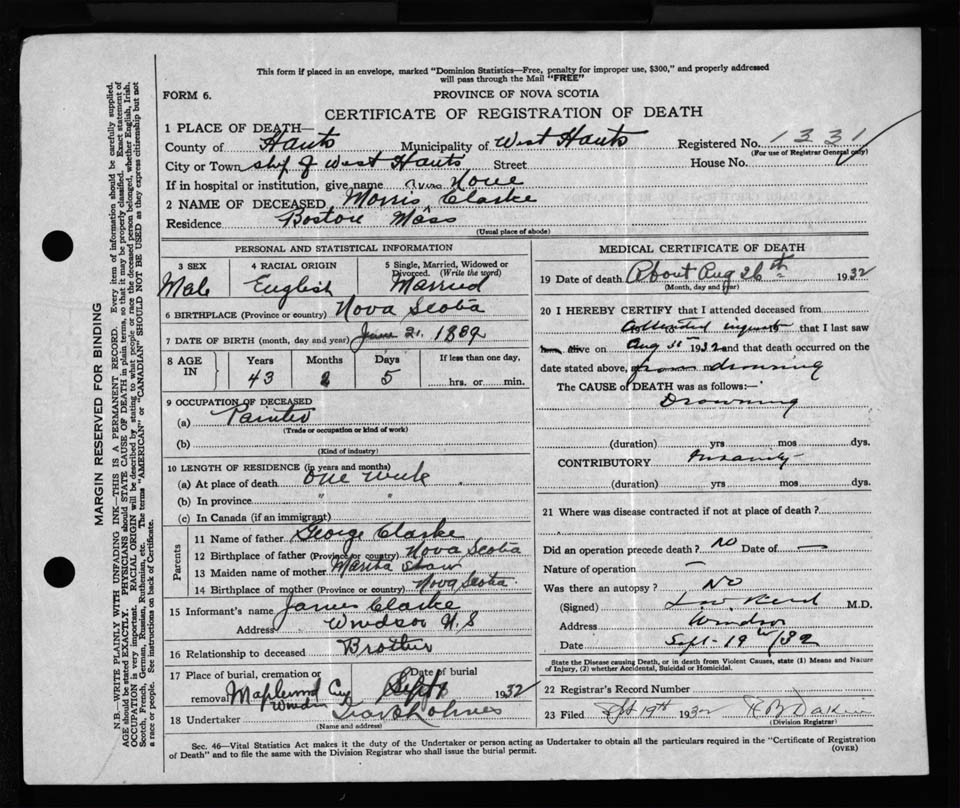 This form if placed in an envelope, marked "Dominion Statistics—Free, penalty for improper use, $300," and properly addressed
will pass through the Mail "FREE"
FORM 6.
PROVINCE OF NOVA SCOTIA
CERTIFICATE OF REGISTRATION OF DEATH
1 PLACE OF DEATH—
County of Hants Municipality of West Hants Registered No. 1331
(For use of Registrar General only)
City or Town ship of West Hants Street House No.
If in hospital or institution, give name None
2 NAME OF DECEASED Morris Clarke
Residence Boston Mass
(Usual place of abode)
PERSONAL AND STATISTICAL INFORMATION
3 SEX
Male
4 RACIAL ORIGIN
English
5 Single, Married, Widowed or
Divorced. (Write the word)
Married
6 BIRTHPLACE (Province or country) Nova Scotia
7 DATE OF BIRTH (month, day and year) June 21. 1889
8 AGE IN
Years Months Days If less than one day,
43 2 5 hrs. or min.
9 OCCUPATION OF DECEASED
(a) Painter
(Trade or occupation or kind of work)
(b)
(Kind of industry)
10 LENGTH OF RESIDENCE (in years and months)
(a) At place of death one week
(b) In province " "
(c) In Canada (if an immigrant)
Parents
11 Name of father George Clarke
12 Birthplace of father (Province or country) Nova Scotia
13 Maiden name of mother Martha Shaw
14 Birthplace of mother (Province or country) Nova Scotia
15 Informant's name James Clarke
Address Windsor N.S
16 Relationship to deceased Brother
17 Place of burial, cremation or Date of burial
removal Maplewood Cem Sept 1 1932
Windsor
18 Undertaker
(Name and address)
MEDICAL CERTIFICATE OF DEATH
19 Date of death About Aug 26th 1932
(Month, day and year)
20 I HEREBY CERTIFY that I attended deceased from
attended inquest that I last saw
alive on Aug 31st 1932 and that death occurred on the
date stated above, drowning
The CAUSE of DEATH was as follows:—
Drowning
(duration) yrs mos dys.
CONTRIBUTORY Insanity
(duration) yrs mos dys.
21 Where was disease contracted if not at place of death?
Did an operation precede death? No Date of —
Nature of operation —
Was there an autopsy? No
(Signed) M.D.
Address Windsor
Date Sept - 19th/32
State the Disease causing Death, or in death from Violent Causes, state (1) Means and Nature
of Injury, (2) whether Accidental, Suicidal or Homicidal.
22 Registrar's Record Number
23 Filed Sept 19th 1932 Dakin
(Division Registrar)
Sec. 46—Vital Statistics Act makes it the duty of the Undertaker or person acting as Undertaker to obtain all the particulars required in the "Certificate of Registration
of Death" and to file the same with the Division Registrar who shall issue the burial permit. (OVER)
MARGIN RESERVED FOR BINDING
N.B.—WRITE PLAINLY WITH UNFADING INK—THIS IS A PERMANENT RECORD. Every item of information should be carefully supplied.
AGE should be stated EXACTLY. PHYSICIANS should STATE CAUSE OF DEATH in plain terms, so that it may be properly classified. Exact statement of
OCCUPATION is very important. RACIAL ORIGIN will be described by stating to what people or race the deceased person belonged, whether English, Irish,
Scotch, French, German, Russian, Ruthenian, etc. The terms "AMERICAN" or "CANADIAN" SHOULD NOT BE USED as they express citizenship but not
a race or people. See instructions on back of Certificate.